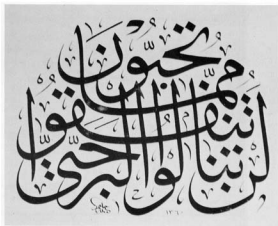 لَنْ تَنَالُوا الْبِرَّ حَتَّىٰ تُنْفِقُوا مِمَّا تُحِبُّونَ